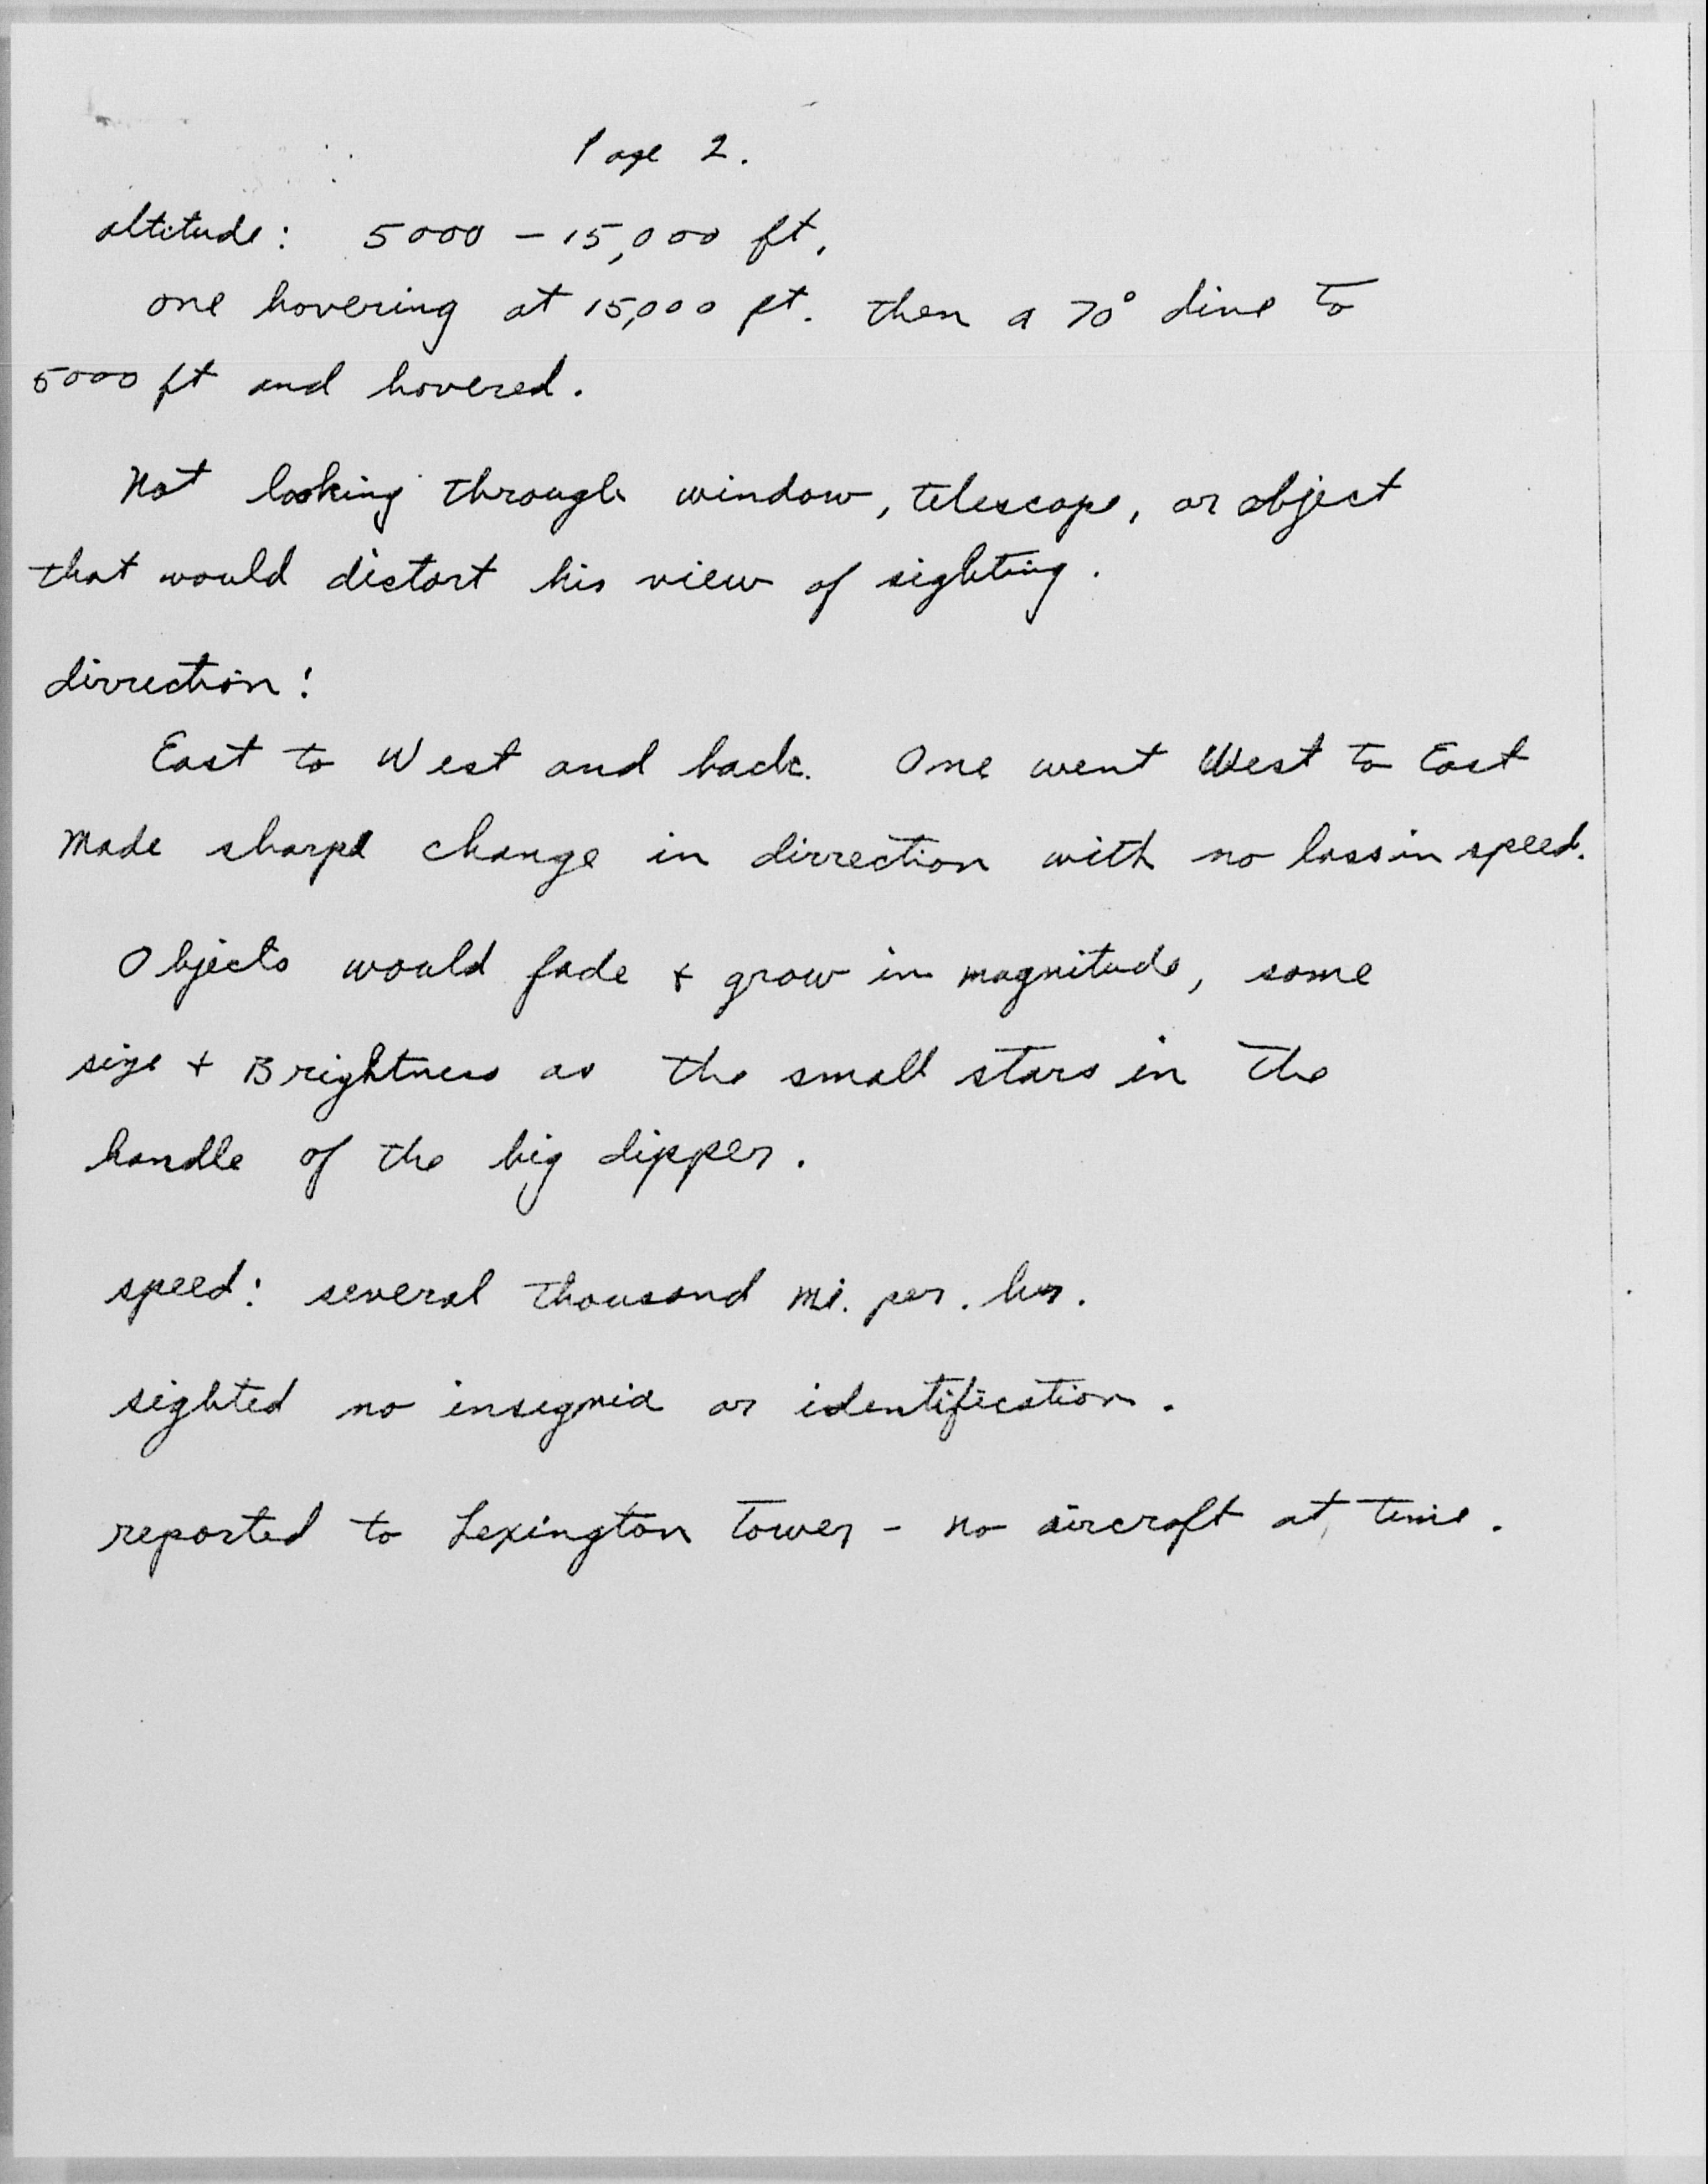 Page 2.
altitude: 5000 - 15,000 ft.
one hovering at 15,000 ft. then a 70° dive to
5000 ft and hovered.
Not looking through window, telescope, or object
that would distort his view of sighting.
dirrection:
East to West and back. One went West to East
Made sharpe change in dirrection with no loss in speed.
Objects would fade + grow in magnitude, same
size + Brightness as the small stars in the
handle of the big dipper.
speed: several thousand mi. per. hr.
sighted no insignia or identification.
reported to Lexington Tower - no aircraft at time.